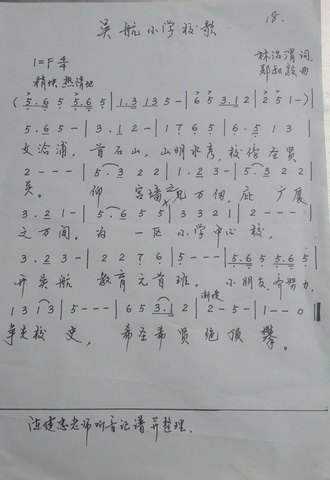 18.
吴航小学校歌
1=F 4/4
林治渭词
郑叙毅曲
稍快 热情地
(5.6 5 5.6 5 | 1.3 1 3 5 - | 6 5 3.1 2 | 2 5 1 - )
5.6 5 - | 3.1 2 - | 1 7 6 5 | 6.5 1 3
文治浦，首石山，山明水秀，校傍圣贤
2 - - - | 5 - 5.3 2 2 | 2 - 1 5 - | 5.3 2 2
关。 仰 宫墙之见万仞，庇 广厦
3.2 1 - | 5 - 6 5 5 | 3 3 2 1 | 2 - - -
之万间。为 一区小学中心校，
3.2 3 - | 2 2 7 6 | 5 - - - | 5.6 5 5.6 5
开吴航 教育元首班。小朋友，齐努力，
1 3 1 3 | 5 - - - | 6 5 3.1 2 | 2 - 5 - | 1 - - 0
争光校史， 希圣希贤绝顶攀。
陈建忠老师听音记谱并整理.